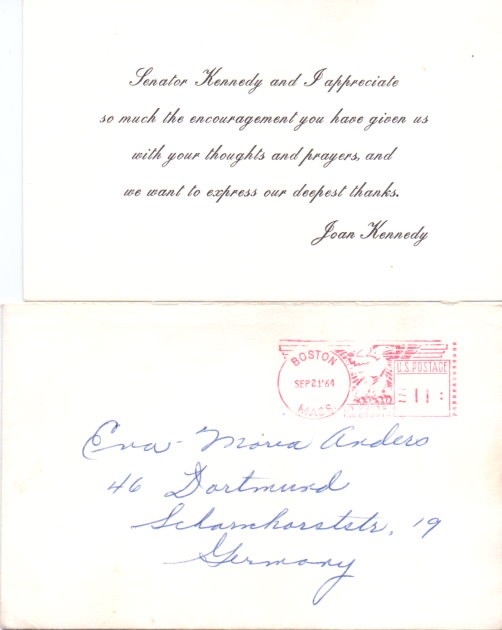 Senator Kennedy and I appreciate
so much the encouragement you have given us
with your thoughts and prayers, and
we want to express our deepest thanks.
Joan Kennedy
BOSTON
SEP 21 '64
MASS
U.S. POSTAGE
Eva-Maria Anders
46 Dortmund
Scharnhorststr. 19
Germany